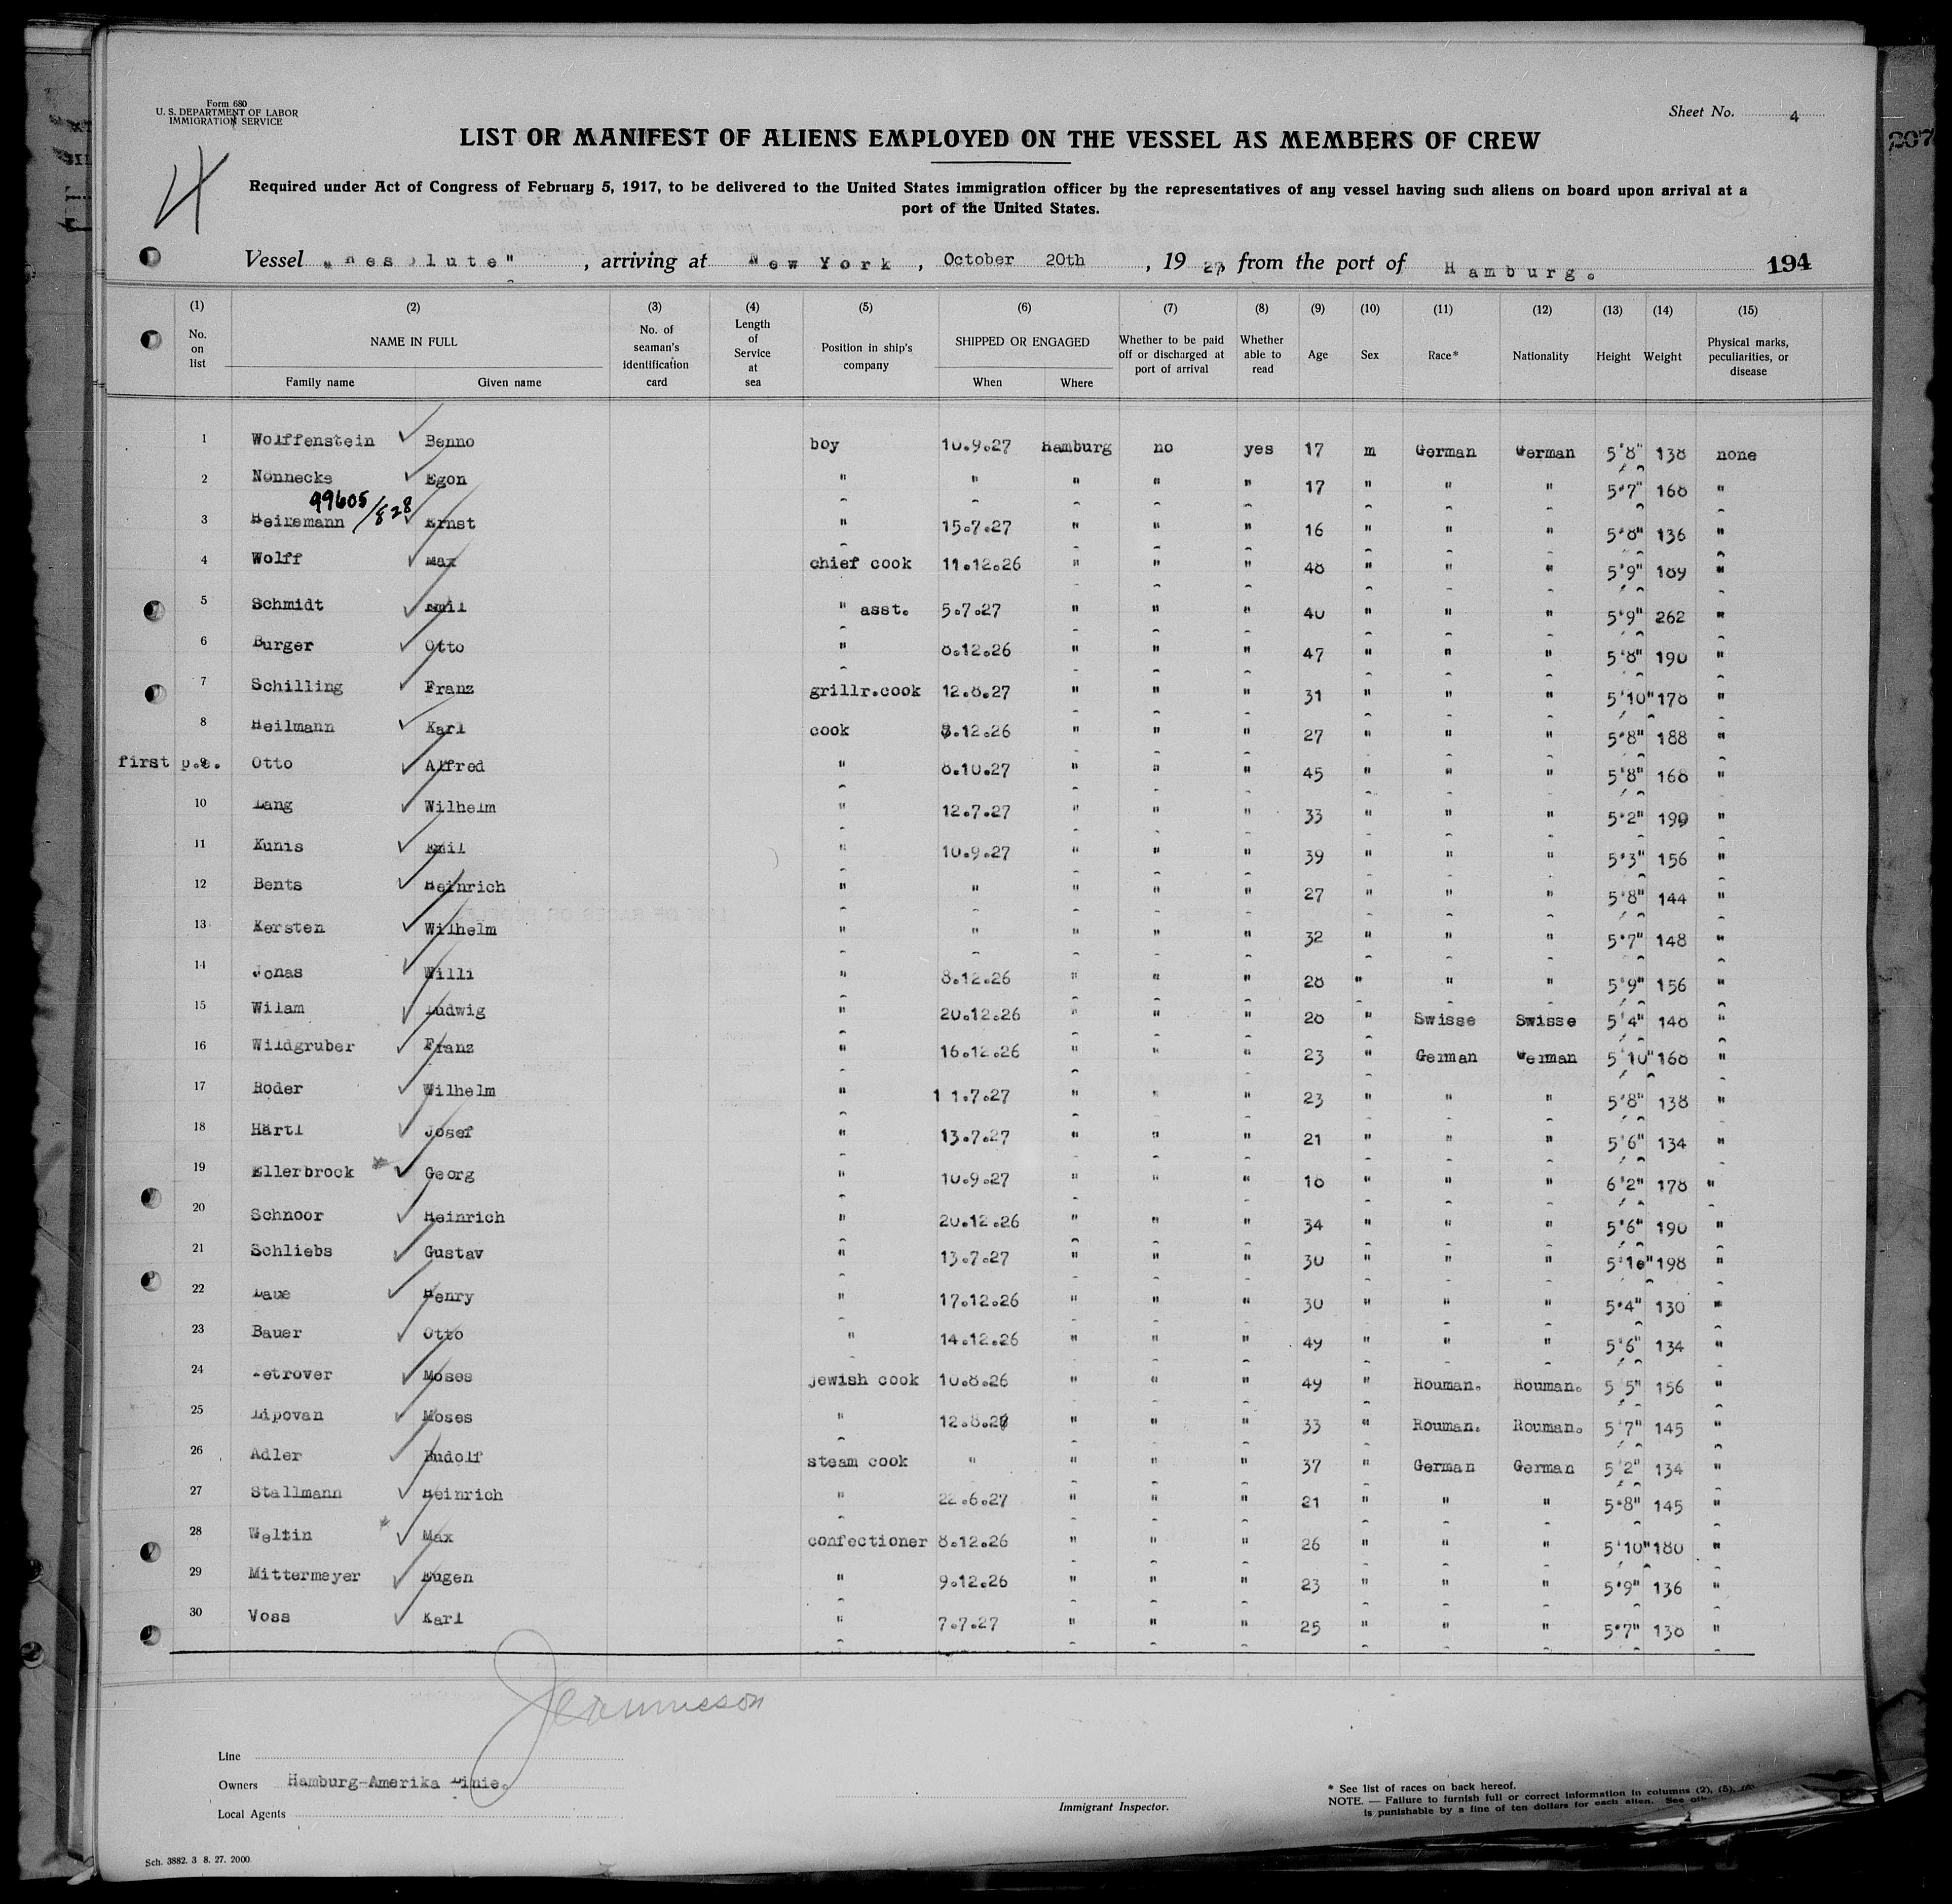 Form 680
U. S. DEPARTMENT OF LABOR
IMMIGRATION SERVICE
Sheet No. 4
LIST OR MANIFEST OF ALIENS EMPLOYED ON THE VESSEL AS MEMBERS OF CREW
4
Required under Act of Congress of February 5, 1917, to be delivered to the United States immigration officer by the representatives of any vessel having such aliens on board upon arrival at a
port of the United States.
Vessel "Resolute", arriving at New York, October 20th, 1927, from the port of Hamburg. 194
(1) (2) (3) (4) (5) (6) (7) (8) (9) (10) (11) (12) (13) (14) (15)
No. on list NAME IN FULL No. of seaman's identification card Length of Service at sea Position in ship's company SHIPPED OR ENGAGED Whether to be paid off or discharged at port of arrival Whether able to read Age Sex Race* Nationality Height Weight Physical marks, peculiarities, or disease
Family name Given name When Where
1 Wolffenstein Benno boy 10.9.27 Hamburg no yes 17 m German German 5'8" 138 none
2 Nonnecke Egon " " " " " 17 " " " 5'7" 168 "
99605/828
3 Heinemann Ernst " 15.7.27 " " " 16 " " " 5'8" 136 "
4 Wolff Max chief cook 11.12.26 " " " 48 " " " 5'9" 189 "
5 Schmidt Emil " asst. 5.7.27 " " " 40 " " " 5'9" 262 "
6 Burger Otto " 8.12.26 " " " 47 " " " 5'8" 190 "
7 Schilling Franz grillr.cook 12.8.27 " " " 31 " " " 5'10" 178 "
8 Heilmann Karl cook 8.12.26 " " " 27 " " " 5'8" 188 "
first p.e. 9 Otto Alfred " 8.10.27 " " " 45 " " " 5'8" 168 "
10 Lang Wilhelm " 12.7.27 " " " 33 " " " 5'2" 190 "
11 Kunis Emil " 10.9.27 " " " 39 " " " 5'3" 156 "
12 Bents Heinrich " " " " " 27 " " " 5'8" 144 "
13 Kersten Wilhelm " " " " " 32 " " " 5'7" 148 "
14 Jonas Willi " 8.12.26 " " " 28 " " " 5'9" 156 "
15 Wilam Ludwig " 20.12.26 " " " 28 " Swisse Swisse 5'4" 148 "
16 Wildgruber Franz " 16.12.26 " " " 23 " German German 5'10" 168 "
17 Roder Wilhelm " 11.7.27 " " " 23 " " " 5'8" 138 "
18 Härtl Josef " 13.7.27 " " " 21 " " " 5'6" 134 "
19 Ellerbrock Georg " 10.9.27 " " " 18 " " " 6'2" 178 "
20 Schnoor Heinrich " 20.12.26 " " " 34 " " " 5'6" 190 "
21 Schliebs Gustav " 13.7.27 " " " 30 " " " 5'10" 198 "
22 Laue Henry " 17.12.26 " " " 30 " " " 5'4" 130 "
23 Bauer Otto " 14.12.26 " " " 49 " " " 5'6" 134 "
24 Petrover Moses jewish cook 10.8.26 " " " 49 " Rouman. Rouman. 5'5" 156 "
25 Lipovan Moses " 12.8.27 " " " 33 " Rouman. Rouman. 5'7" 145 "
26 Adler Rudolf steam cook " " " " 37 " German German 5'2" 134 "
27 Stallmann Heinrich " 22.6.27 " " " 21 " " " 5'8" 145 "
28 Weltin Max confectioner 8.12.26 " " " 26 " " " 5'10" 180 "
29 Mittermeyer Eugen " 9.12.26 " " " 23 " " " 5'9" 136 "
30 Voss Karl " 7.7.27 " " " 25 " " " 5'7" 138 "
Line
Owners Hamburg-Amerika Linie.
Local Agents
Immigrant Inspector.
* See list of races on back hereof.
NOTE. — Failure to furnish full or correct information in columns (2), (5),
is punishable by a fine of ten dollars for each alien. See
Sch. 3882. 3 8. 27. 2000